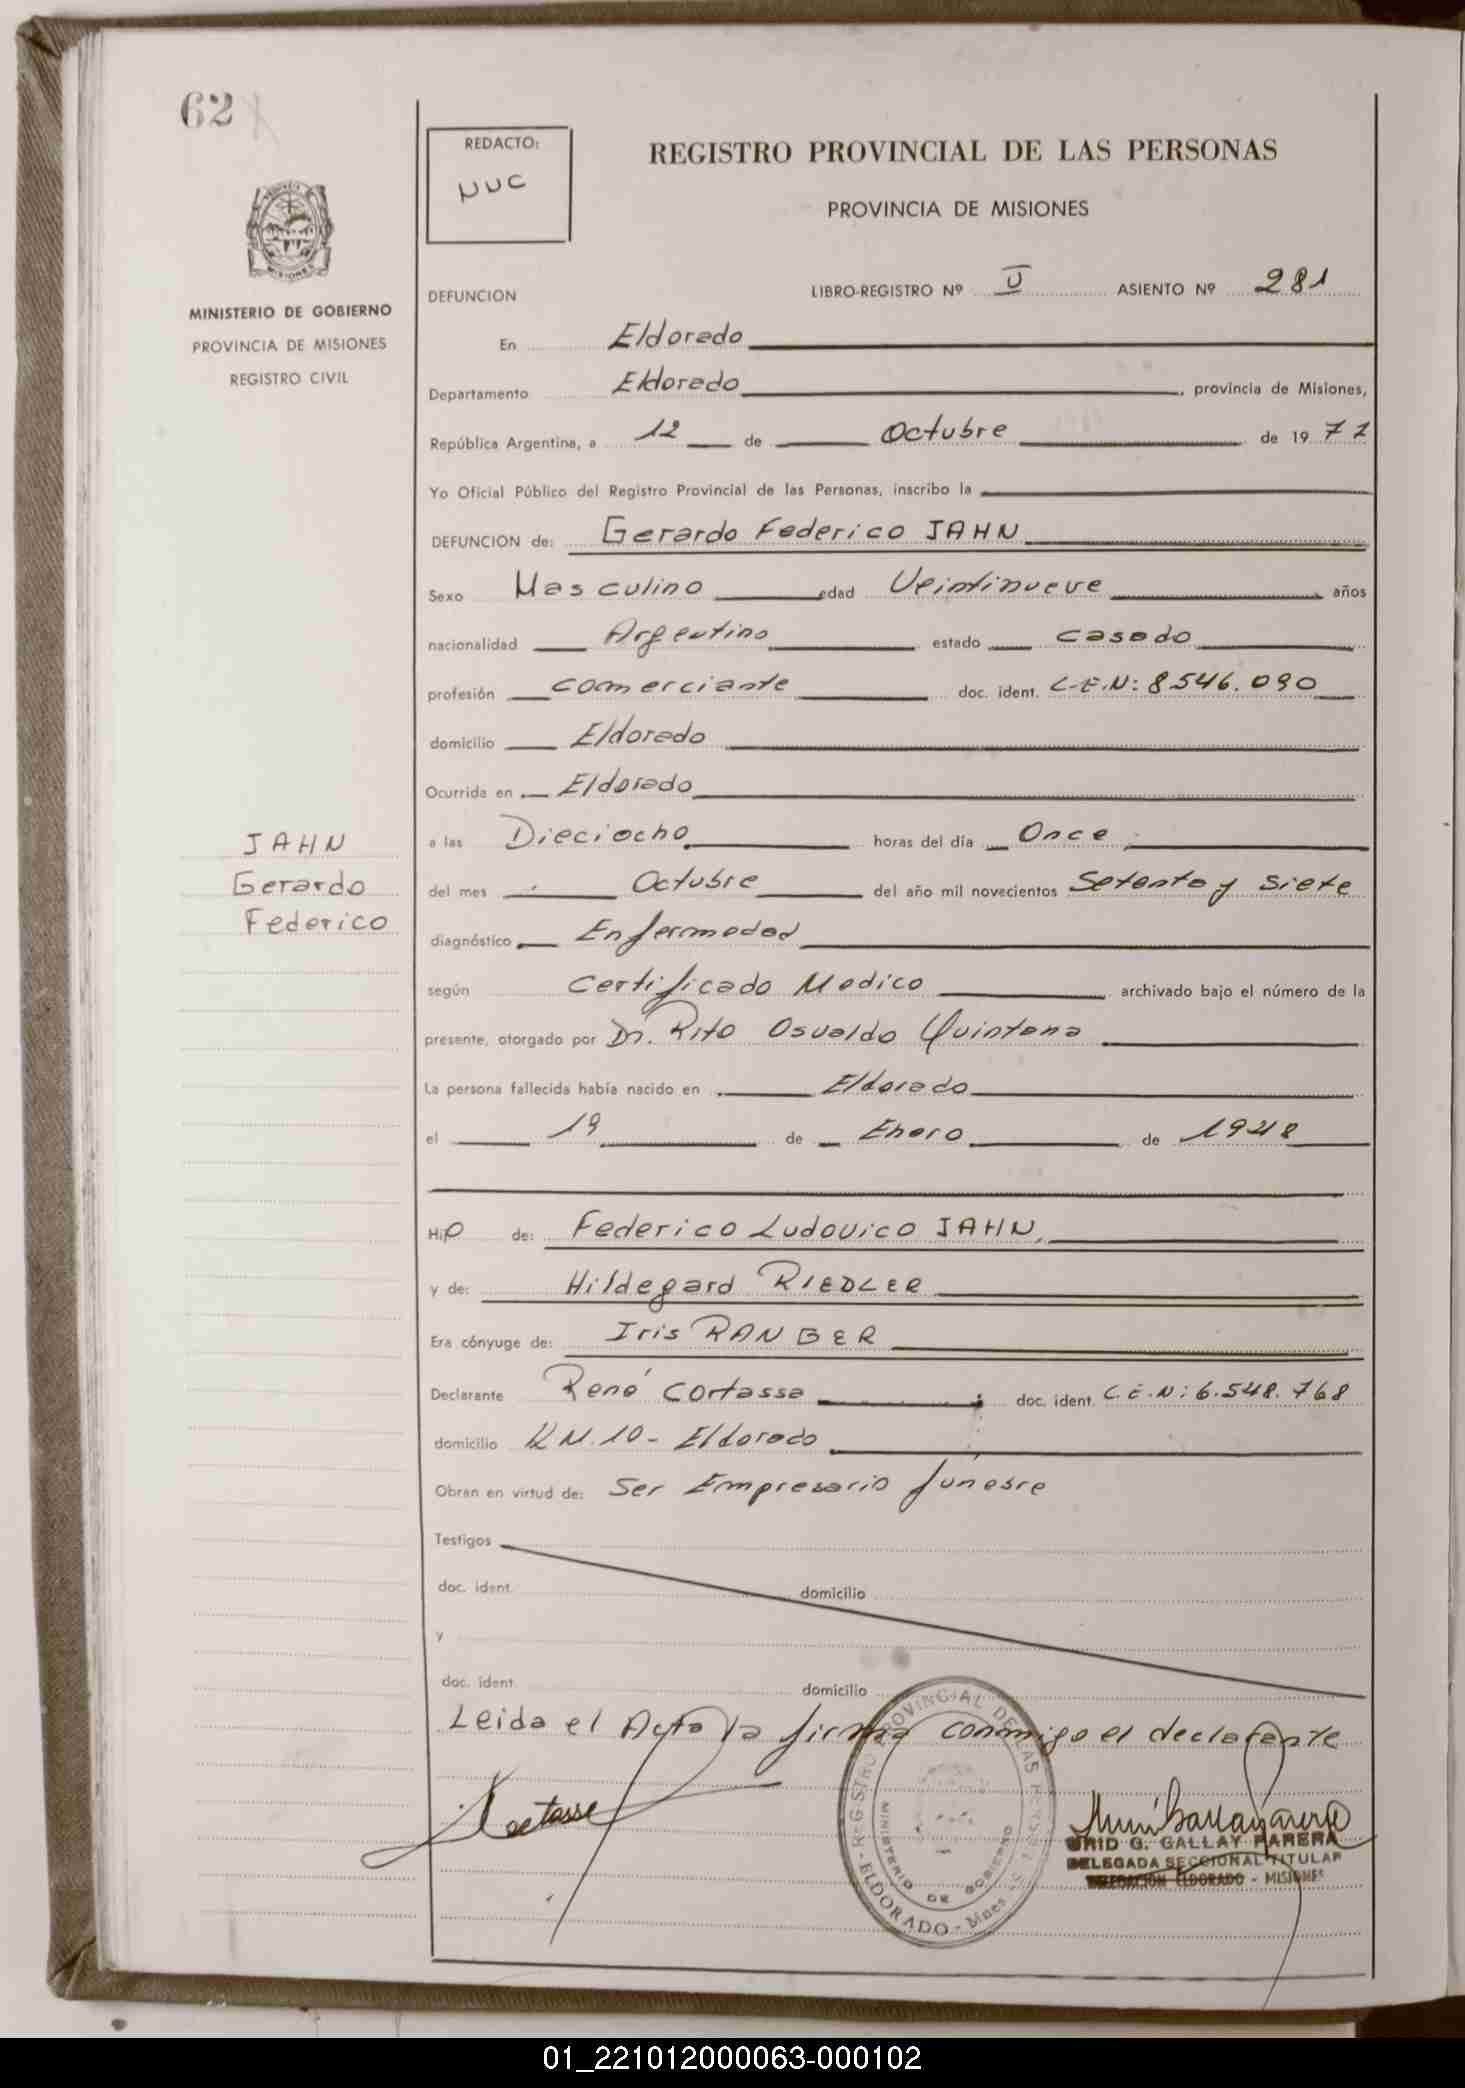 62
REDACTO:
NUC
REGISTRO PROVINCIAL DE LAS PERSONAS
PROVINCIA DE MISIONES
MISIONES
MINISTERIO DE GOBIERNO
PROVINCIA DE MISIONES
REGISTRO CIVIL
DEFUNCION LIBRO-REGISTRO Nº II ASIENTO Nº 281
En Eldorado
Departamento Eldorado, provincia de Misiones,
República Argentina, a 12 de Octubre de 1977
Yo Oficial Público del Registro Provincial de las Personas, inscribo la
DEFUNCION de: Gerardo Federico JAHN
Sexo Masculino edad Veintinueve años
nacionalidad Argentino estado casado
profesión comerciante doc. ident. L.E.N: 8.546.090
domicilio Eldorado
Ocurrida en Eldorado
a las Dieciocho horas del día Once
JAHN
Gerardo
Federico
del mes Octubre del año mil novecientos Setenta y Siete
diagnóstico Enfermedad
según Certificado Medico archivado bajo el número de la
presente, otorgado por Dr. Rito Osvaldo Quintana
La persona fallecida había nacido en Eldorado
el 19 de Enero de 1948
Hijo de: Federico Ludovico JAHN,
y de: Hildegard RIEDLER
Era cónyuge de: Iris RANGER
Declarante René Cortasse doc. ident. L.E.N: 6.548.768
domicilio KM. 10 - Eldorado
Obran en virtud de: Ser Empresario fúnebre
Testigos
doc. ident. domicilio
y
doc. ident. domicilio
Leida el Acta la firma conmigo el declarante
REGISTRO PROVINCIAL DE LAS PERSONAS
MINISTERIO DE GOBIERNO
ELDORADO - Mnes
G. GALLAY PARERA
DELEGADA SECCIONAL TITULAR
DELEGACION ELDORADO - MISIONES
01_221012000063-000102